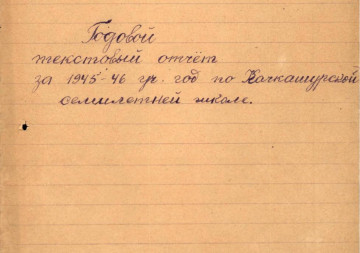 Годовой
текстовый отчёт
за 1945-46 уч. год по Качкашурской
семилетней школе.